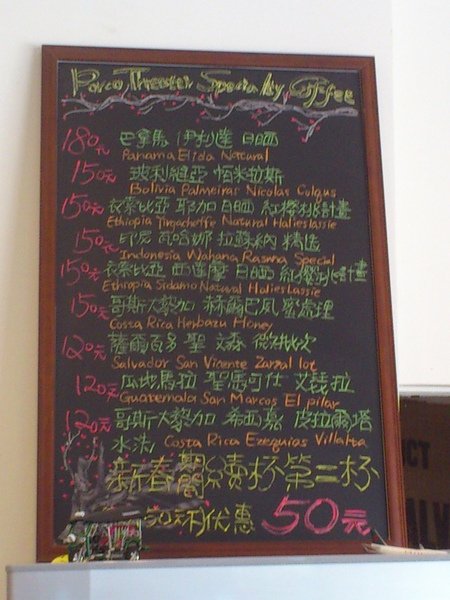 Porco Theater Specialty Coffee
180元 巴拿馬 伊利達 日晒
Panama Elida Natural
150元 玻利維亞 帕米拉斯
Bolivia Palmeiras Nicolas Colgus
150元 衣索比亞 耶加 日晒 紅櫻桃計畫
Ethiopia Yirgacheffe Natural Haileslassie
150元 印尼 瓦哈娜 拉蘇納 精選
Indonesia Wahana Rasuna Special
150元 衣索比亞 西達摩 日晒 紅櫻桃計畫
Ethiopia Sidamo Natural Haileslassie
150元 哥斯大黎加 赫爾巴夙 蜜處理
Costa Rica Herbazu Honey
120元 薩爾瓦多 聖 文森
Salvador San Vicente Zarzal lot
120元 瓜地馬拉 聖馬可仕 艾琵拉
Guatemala San Marcos El pilar
120元 哥斯大黎加 希西嘉 皮拉爾塔
水洗 Costa Rica Ezequias Villalta
新春期間續杯第二杯
優惠 50元
CT